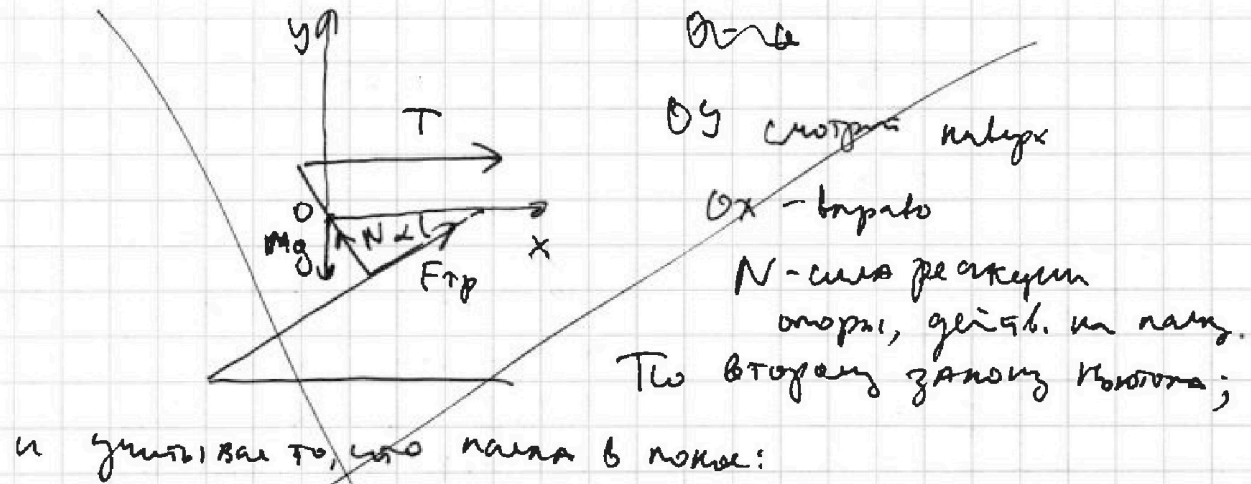 y
T
OY смотрит наверх
O
Ox - вправо
Mg N α x
Fтр
N - сила реакции
опоры, действ. на палку.
По второму закону Ньютона;
и учитывая то, что палка в покое: